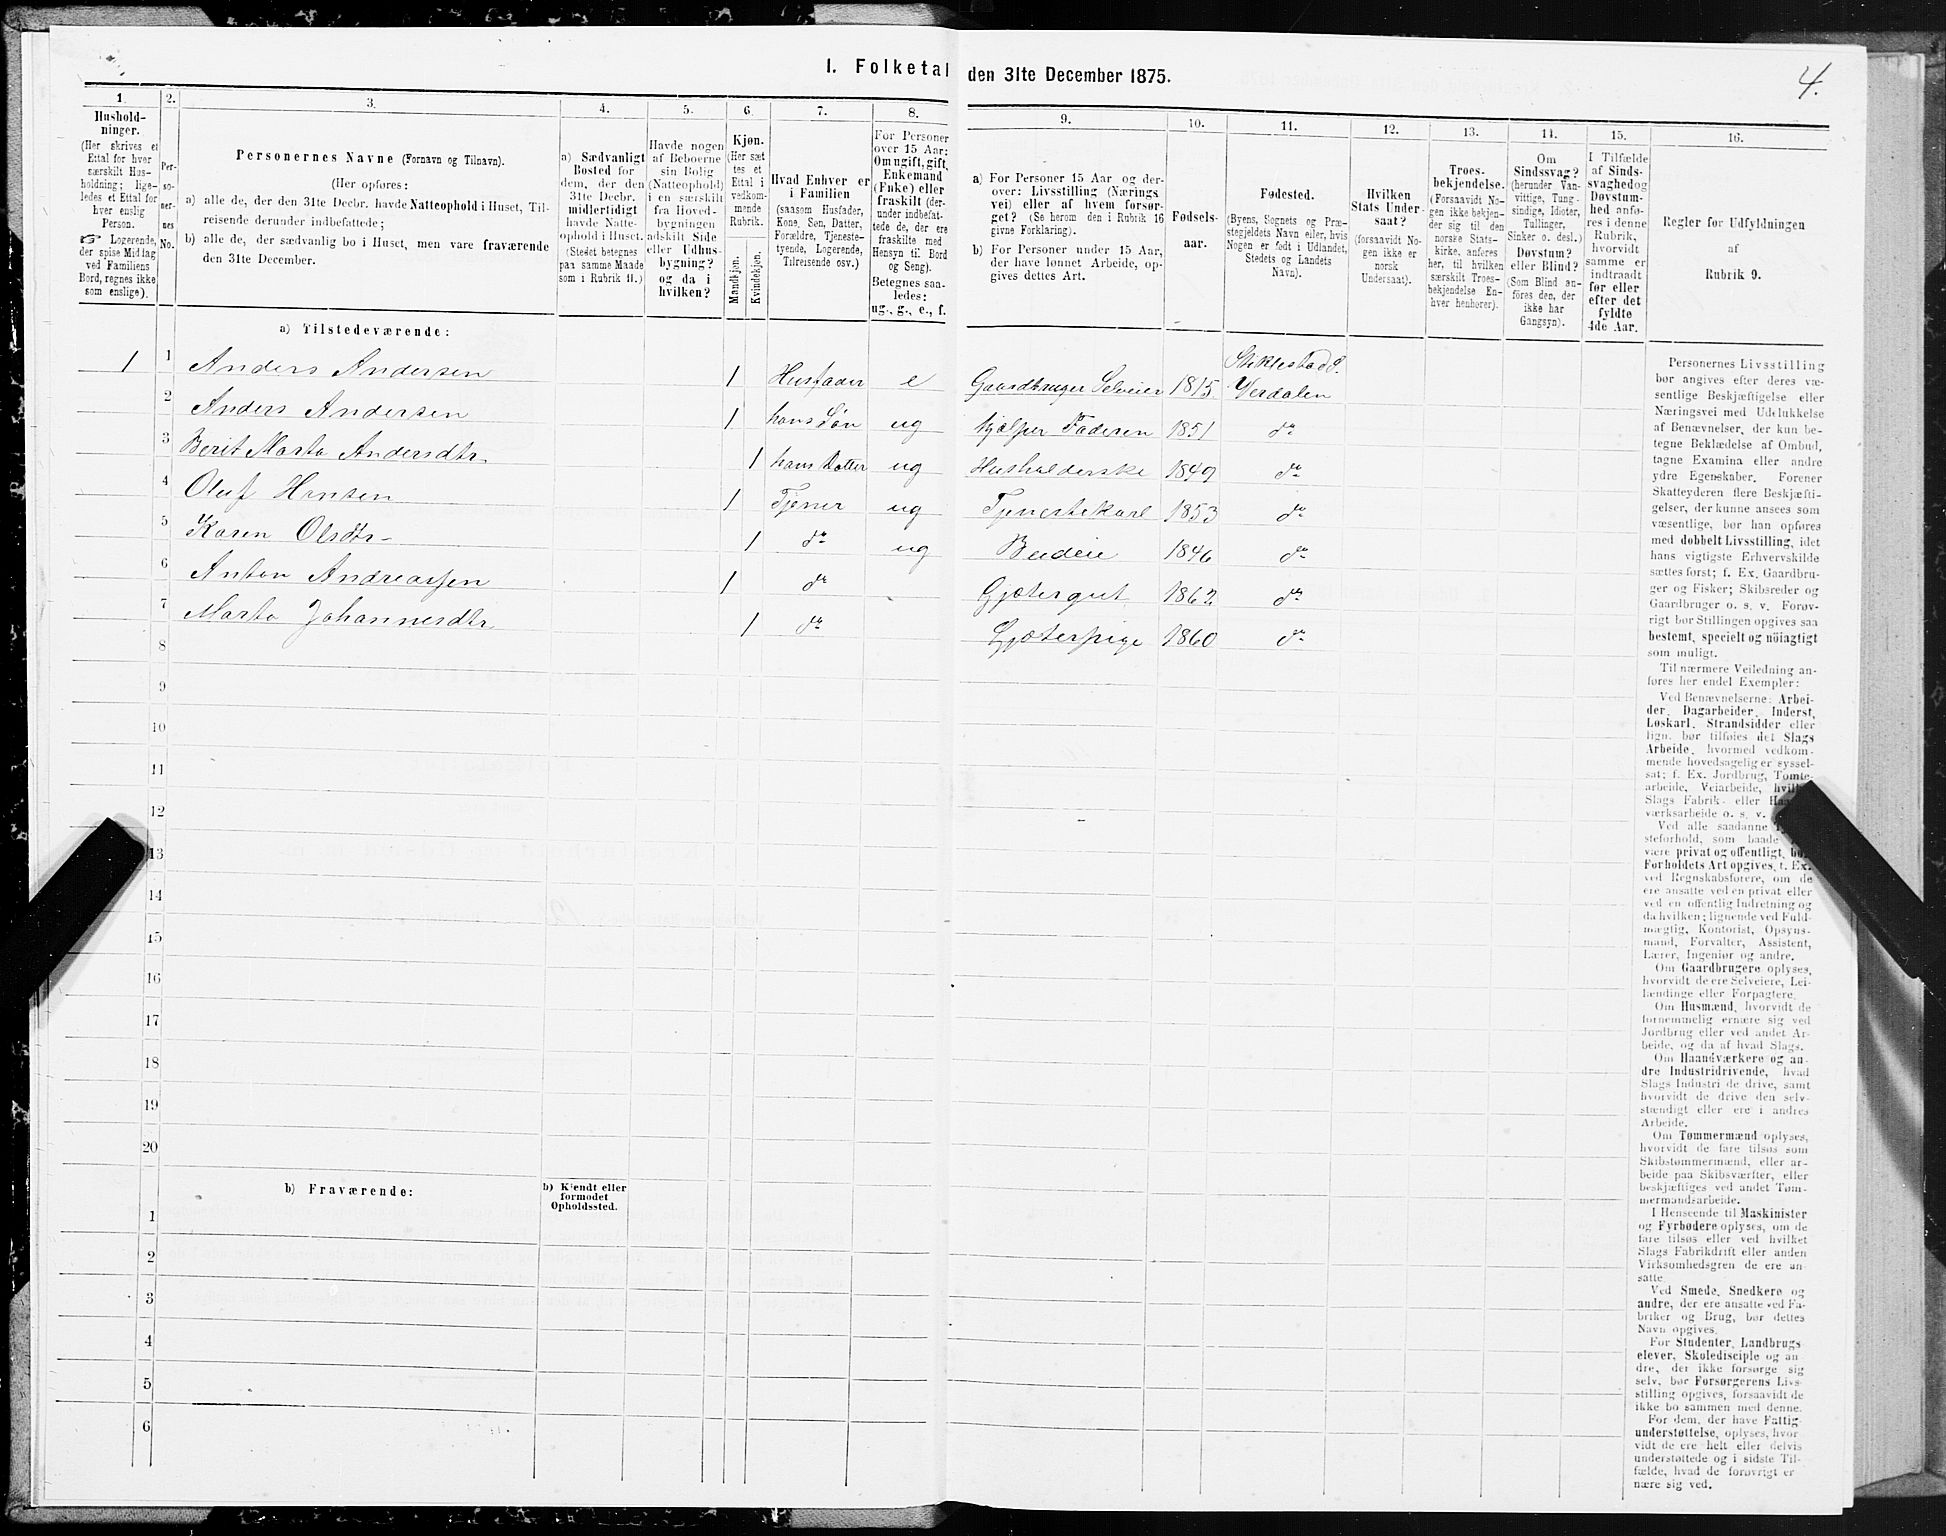 I. Folketal den 31te December 1875.
4.
1. 2. 3. 4. 5. 6. 7. 8. 9. 10. 11. 12. 13. 14. 15. 16.
Hushold-
ninger.
(Her skrives et
Ettal for hver
særskilt Hus-
holdning; lige-
ledes et Ettal for
hver enslig
Person.
☞ Logerende,
der spise Middag
ved Familiens
Bord, regnes ikke
som enslige).
Per-
so-
ner-
nes
No.
Personernes Navne (Fornavn og Tilnavn).
(Her opføres:
a) alle de, der den 31te Decbr. havde Natteophold i Huset, Til-
reisende derunder indbefattede;
b) alle de, der sædvanlig bo i Huset, men vare fraværende
den 31te December.
a) Sædvanligt
Bosted for
dem, der den
31te Decbr.
midlertidigt
havde Natte-
ophold i Huset.
(Stedet betegnes
paa samme Maade
som i Rubrik 11.)
Havde nogen
af Beboerne
sin Bolig
(Natteophold)
i en særskilt
fra Hoved-
bygningen
adskilt Side-
eller Udhus-
bygning?
og da i
hvilken?
Kjøn.
(Her sæt-
tes et
Ettal i
vedkom-
mende
Rubrik.
Mandkjøn.
Kvindekjøn.
Hvad Enhver er
i Familien
(saasom Husfader,
Kone, Søn, Datter,
Forældre, Tjeneste-
tyende, Logerende,
Tilreisende osv.)
For Personer
over 15 Aar:
Om ugift, gift,
Enkemand
(Enke) eller
fraskilt (der-
under indbefat-
tede de, der ere
fraskilte med
Hensyn til Bord
og Seng).
Betegnes saa-
ledes:
ug., g., e., f.
a) For Personer 15 Aar og der-
over: Livsstilling (Nærings-
vei) eller af hvem forsør-
get? (Se herom den i Rubrik 16
givne Forklaring).
b) For Personer under 15 Aar,
der have lønnet Arbeide, op-
gives dettes Art.
Fødsels-
aar.
Fødested.
(Byens, Sognets og Præ-
stegjeldets Navn eller, hvis
Nogen er født i Udlandet,
Stedets og Landets
Navn).
Hvilken
Stats Under-
saat?
(forsaavidt No-
gen ikke er
norsk
Undersaat).
Troes-
bekjendelse.
(Forsaavidt No-
gen ikke bekjen-
der sig til den
norske Stats-
kirke, anføres
her, til hvilken
særskilt Troes-
bekjendelse En-
hver henhører).
Om
Sindssvag?
(herunder Van-
vittige, Tung-
sindige, Idioter,
Tullinger,
Sinker o. desl.)
Døvstum?
eller Blind?
(Som Blind an-
føres den, der
ikke har
Gangsyn).
I Tilfælde
af Sinds-
svaghed og
Døvstum-
hed anfø-
res i denne
Rubrik,
hvorvidt
samme er
indtraadt
før eller
efter det
fyldte
4de Aar.
Regler for Udfyldningen
af
Rubrik 9.
a) Tilstedeværende:
1 1 Anders Andersen 1 Husfader e Gaardbruger Selveier 1815 Stiklestad S. Verdalen
2 Anders Andersen 1 hans Søn ug hjælper Faderen 1851 do
3 Berit Marta Andersdtr. 1 hans Datter ug Husholderske 1849 do
4 Oluf Hansen 1 Tjener ug Tjenestekarl 1853 do
5 Karen Olsdtr. 1 do ug Budeie 1846 do
6 Anton Andreassen 1 do Gjætergut 1862 do
7 Marta Johannesdtr 1 do Gjæterpige 1860 do
8
9
10
11
12
13
14
15
16
17
18
19
20
b) Fraværende:
b) Kjendt eller
formodet
Opholdssted.
1
2
3
4
5
6
Personernes Livsstilling
bør angives efter deres væ-
sentlige Beskjæftigelse eller
Næringsvei med Udelukkelse
af Benævnelser, der kun be-
tegne Beklædelse af Ombud,
tagne Examina eller andre
ydre Egenskaber. Forener
Skatteyderen flere Beskjæfti-
gelser, der kunne ansees som
væsentlige, bør han opføres
med dobbelt Livsstilling, idet
hans vigtigste Erhvervskilde
sættes først; f. Ex. Gaardbru-
ger og Fisker; Skibsreder og
Gaardbruger o. s. v. Forøv-
rigt bør Stillingen opgives saa
bestemt, specielt og nøiagtigt
som muligt.
Til nærmere Veiledning an-
føres her endel Exempler:
Ved Benævnelserne: Arbei-
der, Dagarbeider, Inderst,
Løskarl, Strandsidder eller
lign. bør tilføies det Slags
Arbeide, hvormed vedkom-
mende hovedsagelig er syssel-
sat; f. Ex. Jordbrug, Tomte-
arbeide, Veiarbeide,
Slags Fabrik- eller
værksarbeide o. s. v.
Ved alle saadanne
steforhold, som baade
være privat og offentligt, bør
Forholdets Art opgives, f. Ex.
ved Regnskabsførere, om de
ere ansatte ved en privat eller
ved en offentlig Indretning og
da hvilken; lignende ved Fuld-
mægtig, Kontorist, Opsyns-
mand, Forvalter, Assistent,
Lærer, Ingeniør og andre.
Om Gaardbrugere oplyses,
hvorvidt de ere Selveiere, Lei-
lændinge eller Forpagtere.
Om Husmænd, hvorvidt de
fornemmelig ernære sig ved
Jordbrug eller ved andet Ar-
beide, og da af hvad Slags.
Om Haandværkere og an-
dre Industridrivende, hvad
Slags Industri de drive, samt
hvorvidt de drive den selv-
stændigt eller ere i andres
Arbeide.
Om Tømmermænd oplyses,
hvorvidt de fare tilsøs som
Skibstømmermænd, eller ar-
beide paa Skibsværfter, eller
beskjæftiges ved andet Tøm-
mermandsarbeide.
I Henseende til Maskinister
og Fyrbødere oplyses, om de
fare tilsøs eller ved hvilket
Slags Fabrikdrift eller anden
Virksomhedsgren de ere an-
satte.
Ved Smede, Snedkere og
andre, der ere ansatte ved Fa-
briker og Brug, bør dettes
Navn opgives.
For Studenter, Landbrugs-
elever, Skoledisciple og an-
dre, der ikke forsørge sig
selv, bør Forsørgerens Livs-
stilling opgives, forsaavidt de
ikke bo sammen med denne.
For dem, der have Fattig-
understøttelse, oplyses, hvor-
vidt de ere helt eller delvis
understøttede og i sidste Til-
fælde, hvad de forøvrigt er-
nære sig ved.